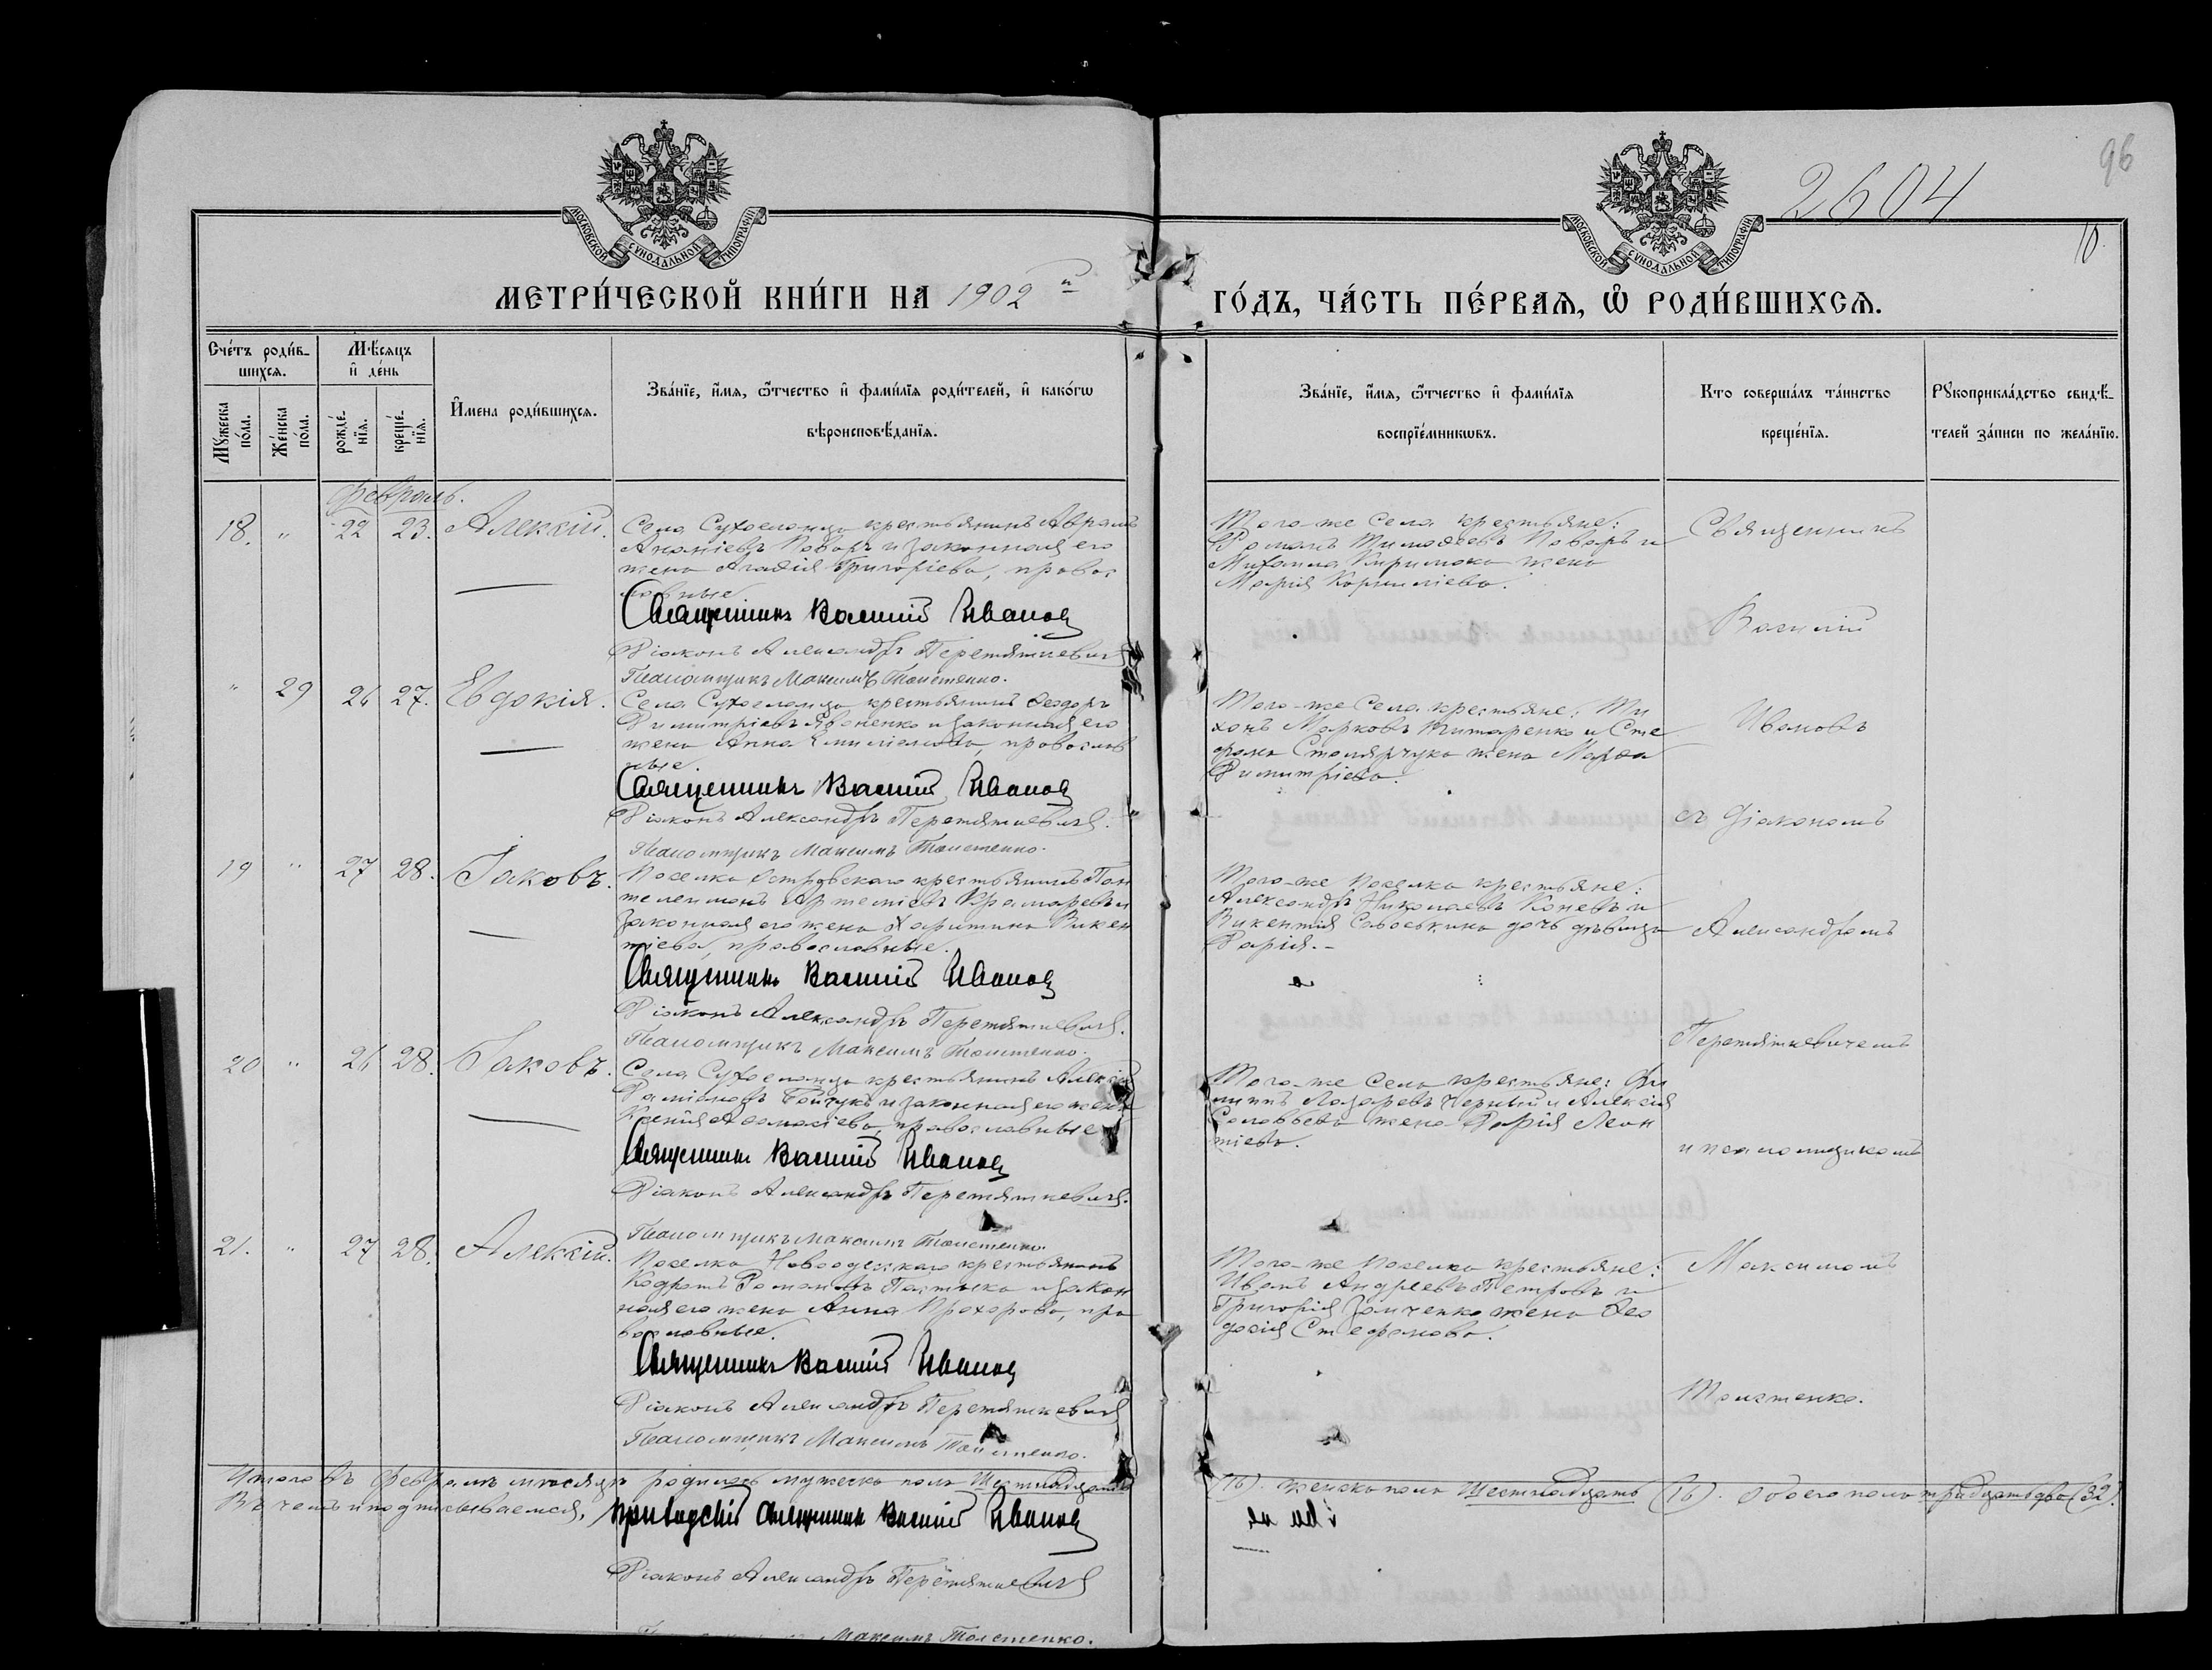 96
2604
10.
МОСКОВСКОЙ СѴНОДАЛЬНОЙ ТИПОГРАФІИ
МОСКОВСКОЙ СѴНОДАЛЬНОЙ ТИПОГРАФІИ
МЕТРИ́ЧЕСКОЙ КНИ́ГИ НА 1902 й
ГО́ДЪ, ЧА́СТЬ ПЕ́РВАѦ, Ѿ РОДИ́ВШИХСѦ.
Сче́тъ роди́в-
шихсѧ.
Мꙋ́жеска по́ла.
Же́нска по́ла.
Мѣ́сѧцъ
и҆ де́нь
рожде́-нїѧ.
креще́-нїѧ.
И҆мена роди́вшихсѧ.
Зва́нїе, и҆́мѧ, ѻ҆́тчество и҆ фами́лїѧ роди́телей, и҆ како́гѡ
вѣроисповѣ́данїѧ.
Зва́нїе, и҆́мѧ, ѻ҆́тчество и҆ фами́лїѧ
воспрїе́мникѡвъ.
Кто соверша́лъ та́инство
креще́нїѧ.
Рꙋкоприкла́дство свидѣ́-
телей за́писи по жела́нїю.
Февраль.
18. " 22 23. Алексій.
Села Сухоеланца крестьянинъ Аврамъ
Ананіевъ Коваръ и законная его
жена Агафія Григоріева, правос
лавные.
Священникъ Василій Ивановъ
Діаконъ Александръ Перетяткевичъ
Псаломщикъ Максимъ Толстенко.
Того-же села крестьяне:
Романъ Тимофеевъ Коваръ и
Михаила Киримака жена
Марія Корнилиева.
" 29 26 27. Евдокія.
Села Сухоеланца крестьянинъ Феодоръ
Димитріевъ Явоненко и законная его
жена Анна Емиліанова, православ
ные.
Священникъ Василій Ивановъ
Діаконъ Александръ Перетяткевичъ.
Псаломщикъ Максимъ Толстенко.
Того-же села крестьяне: Ти
хонъ Марковъ Титаренко и Сте
фана Столярчука жена Марфа
Димитріева.
19 " 27 28. Іаковъ.
Поселка Островскаго крестьянинъ Пан
телеимонъ Артеміевъ Крамаревъ и
законная его жена Харитина Викен
тіева, православные.
Священникъ Василій Ивановъ
Діаконъ Александръ Перетяткевичъ.
Псаломщикъ Максимъ Толстенко.
Того-же поселка крестьяне:
Александръ Николаевъ Коневъ и
Викентія Савоськина дочь дѣвица
Дарія.-
20 " 26 28. Іаковъ.
Села Сухоеланца крестьянинъ Алексій
Даміановъ Бойчукъ и законная его жена
Ксенія Афанасіева, православные
Священникъ Василій Ивановъ
Діаконъ Александръ Перетяткевичъ.
Псаломщикъ Максимъ Толстенко.
Того-же села крестьяне: Фи
липпъ Лазаревъ Черный и Алексія
Соловьева жена Дарія Леон
тіева.
21. " 27 28. Алексій.
Поселка Новоодесскаго крестьянинъ
Кодратъ Романовъ Пастыка и закон
ная его жена Анна Прохорова, пра
вославные.
Священникъ Василій Ивановъ
Діаконъ Александръ Перетяткевичъ
Псаломщикъ Максимъ Толстенко.
Того-же поселка крестьяне:
Иванъ Андреевъ Петровъ и
Григорія Замченко жена Фео
досія Стефанова.
Священникъ
Василій
Ивановъ
съ Діакономъ
Александромъ
Перетяткевичемъ
и псаломщикомъ
Максимомъ
Толстенко.
Итого въ Февралѣ мѣсяцѣ родилось мужеска пола Шестнадцать (16). женска пола Шестнадцать (16). обоего пола тридцать два (32).
Въ чемъ и подписываемся, Приходскій Священникъ Василій Ивановъ
Діаконъ Александръ Перетяткевичъ
Максимъ Толстенко.